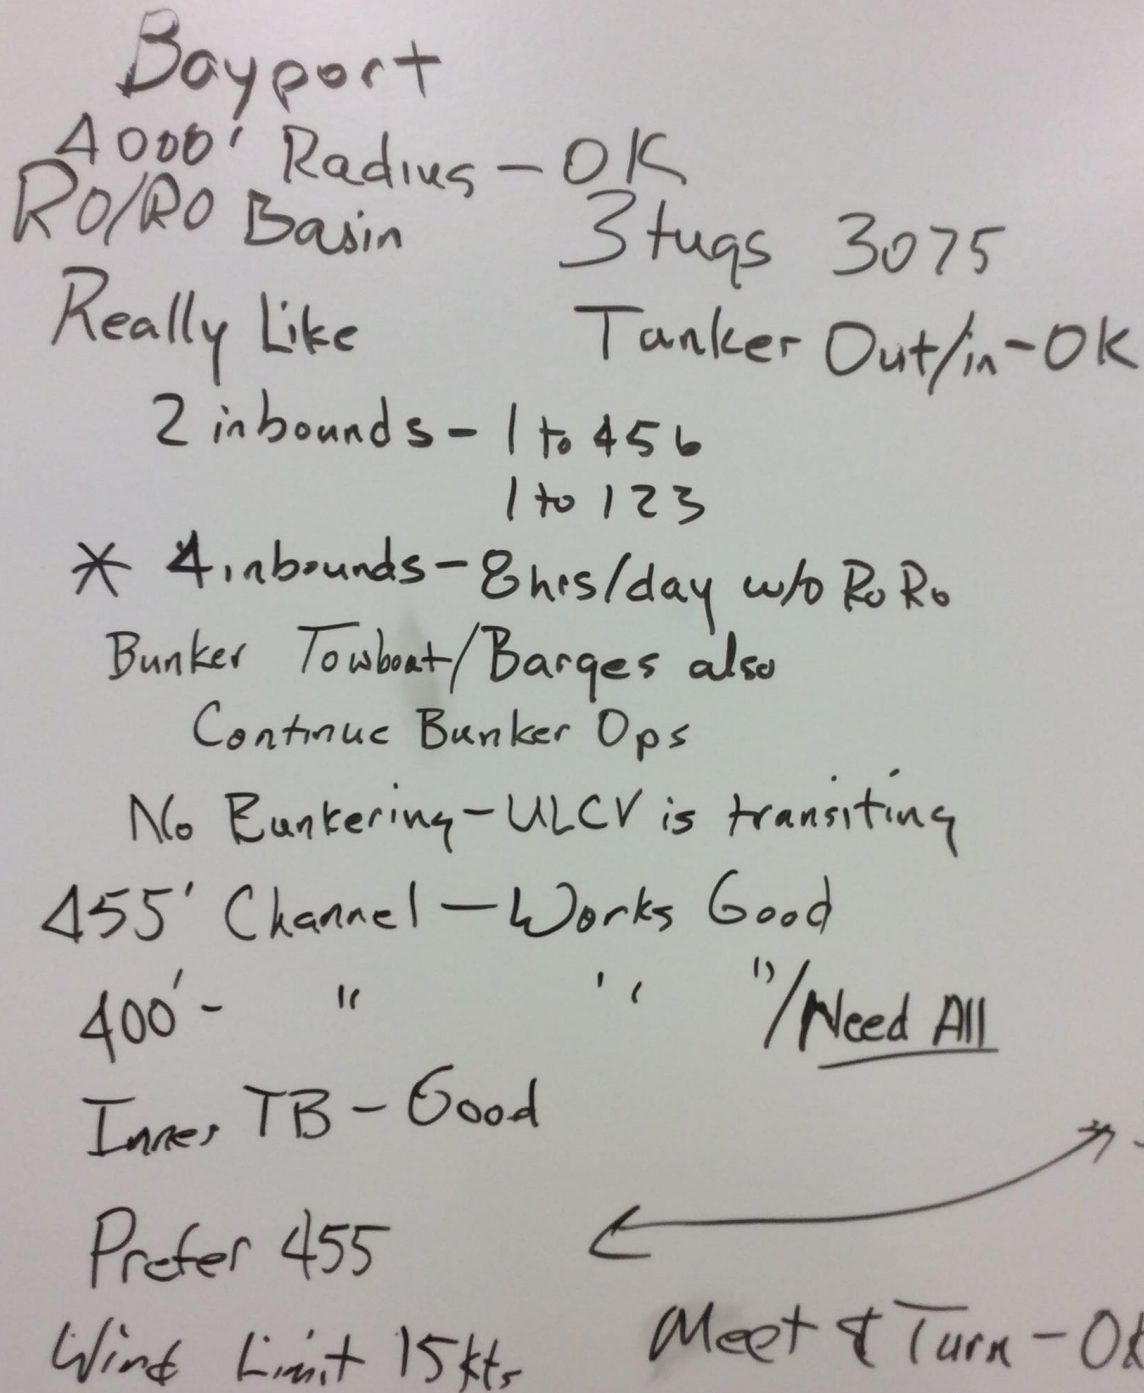 Bayport
4000' Radius - OK
RO/RO Basin 3 tugs 3075
Really Like Tanker Out/in - OK
2 inbounds - 1 to 456
1 to 123
* 4 inbounds - 8 hrs/day w/o RoRo
Bunker Towboat/Barges also
Continue Bunker Ops
No Bunkering - ULCV is transiting
455' Channel - Works Good
400' - " " "/Need All
Inner TB - Good
Prefer 455
Wind Limit 15kts Meet & Turn - OK